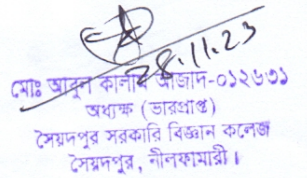 28.11.23
মোঃ আবুল কালাম আজাদ-০১২৬৩১
অধ্যক্ষ (ভারপ্রাপ্ত)
সৈয়দপুর সরকারি বিজ্ঞান কলেজ
সৈয়দপুর, নীলফামারী।